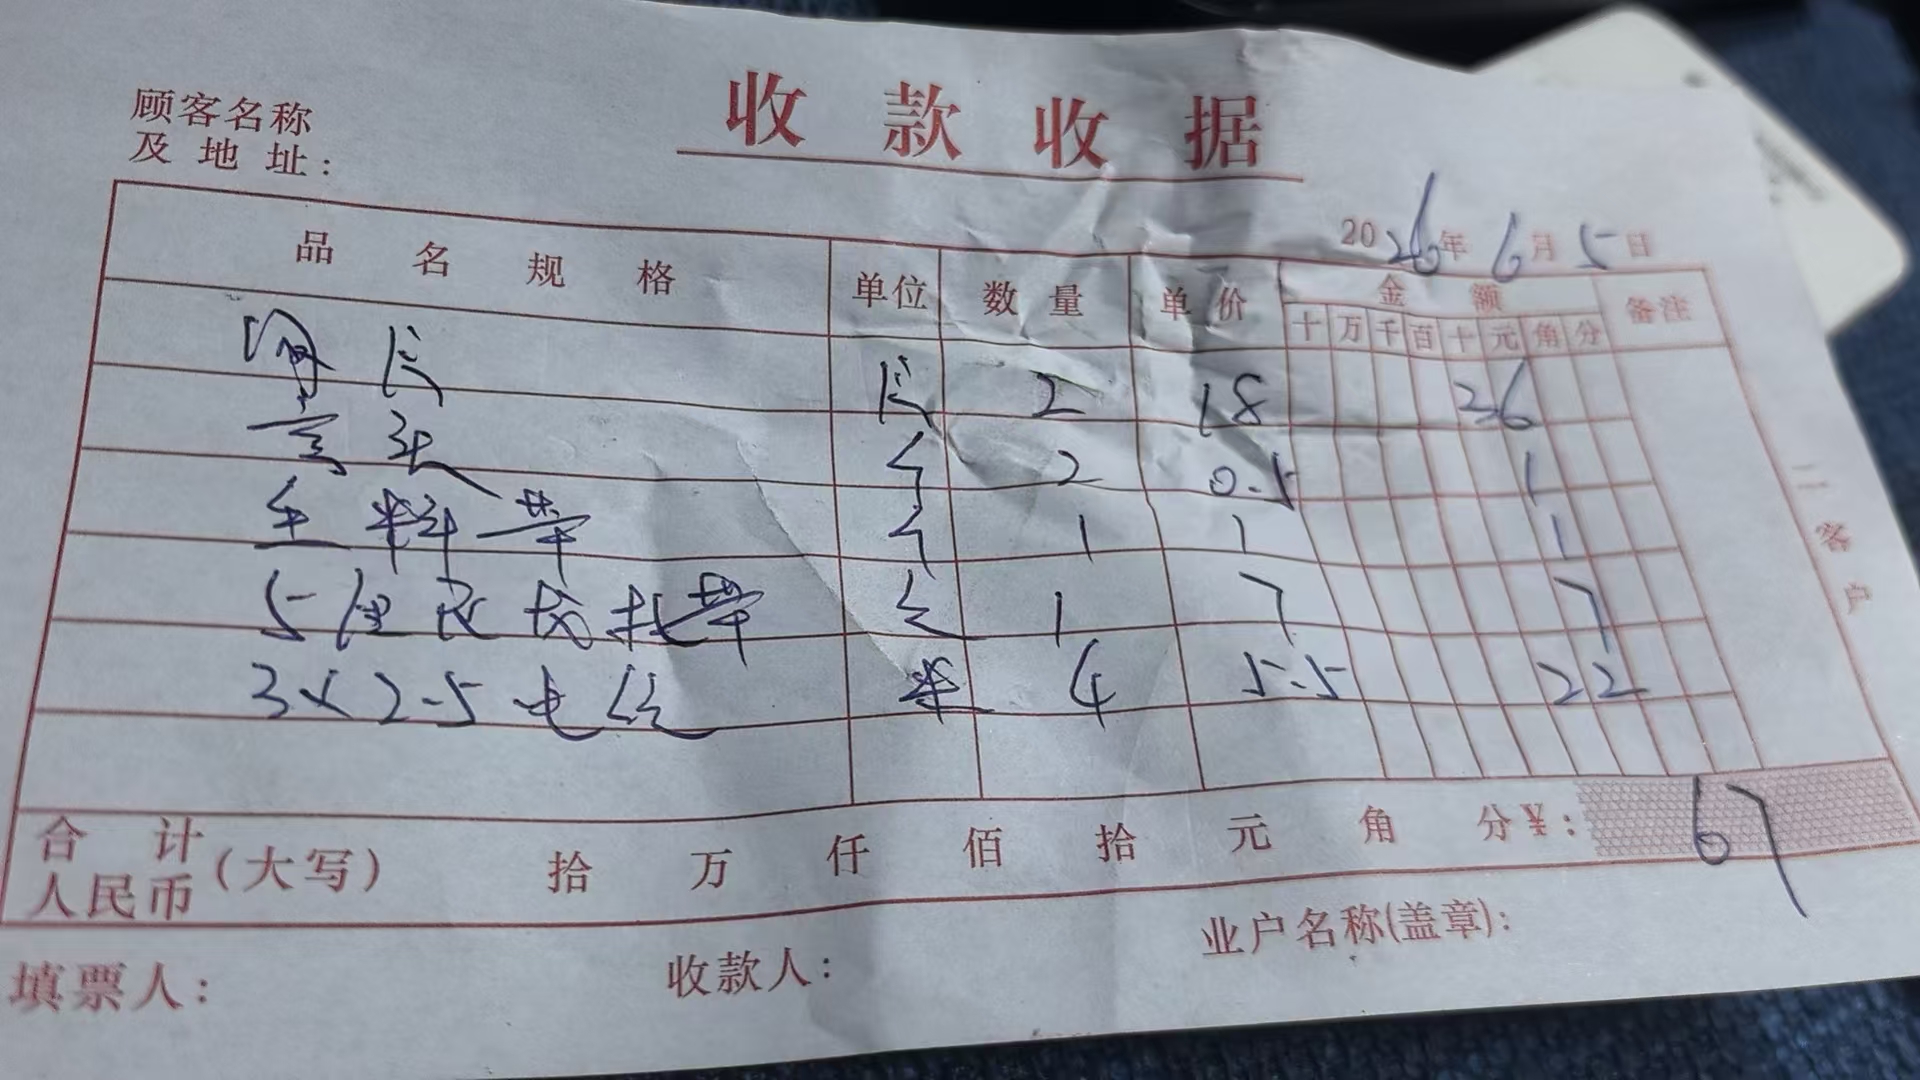 收款收据
顾客名称
及地址:
2026年6月5日
品名规格 单位 数量 单价 金额 备注
十 万 千 百 十 元 角 分
2 18 36
头 个 2 0.5 1
料带 个 1 1 1
5 1 7 7
3×2.5电线 米 4 5.5 22
合计
人民币
(大写) 拾 万 仟 佰 拾 元 角 分 ¥: 67
填票人: 收款人: 业户名称(盖章):
二 客户